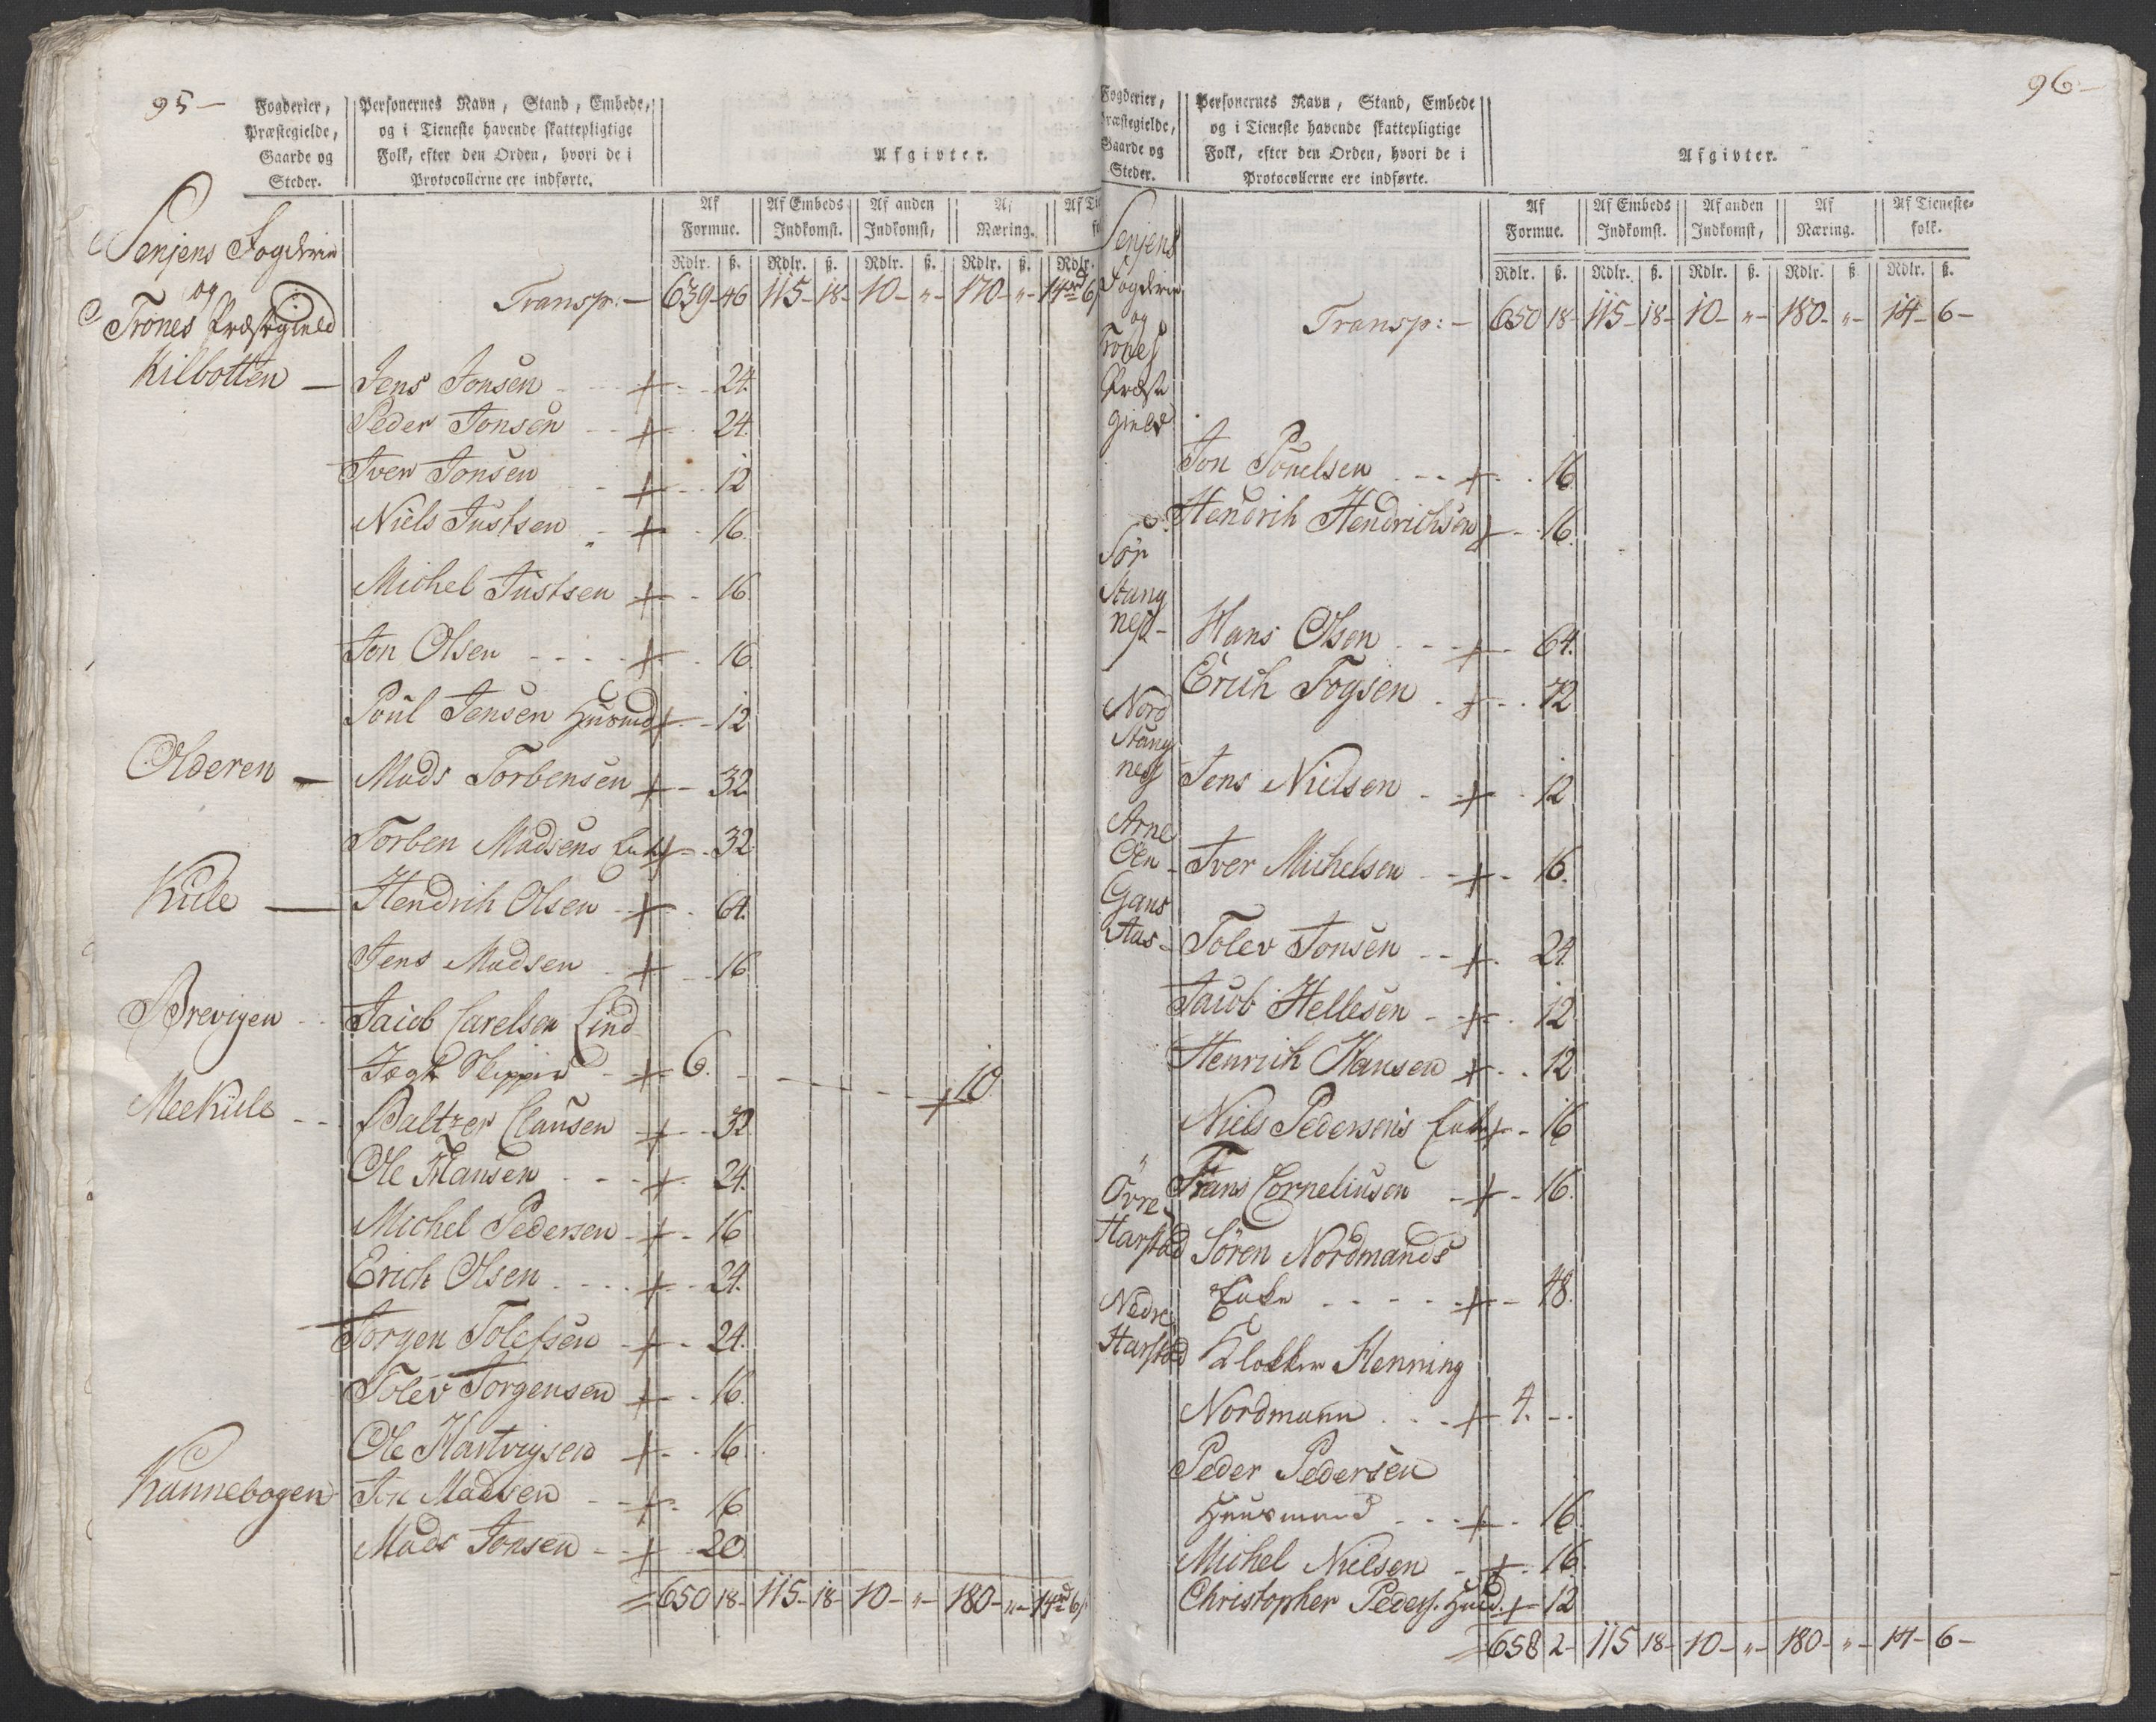 95 —
Fogderier, Præstegielde, Gaarde og Steder.
Personernes Navn, Stand, Embede, og i Tieneste havende skattepligtige Folk, efter den Orden, hvori de i Protocollerne ere indførte.
Afgivter.
Af Formue. Af Embeds Indkomst. Af anden Indkomst, Af Næring. Af Ti
Rdlr. ß. Rdlr. ß. Rdlr. ß. Rdlr. ß. Rdlr.
Senjens Fogderie
og
Trones Præstegield
Transp: — 639-46 115-18- 10-"- 170-"- 14 rd 6
Kilbotten — Jens Jonsen + 24.
Peder Jonsen + 24.
Iver Jonsen + 12
Niels Justsen + 16.
Michel Justsen + 16.
Jon Olsen + 16.
Poul Jensen Huusmd + 12
Olderen — Mads Torbensen + 32
Torben Madsens Enke + 32.
Kiile — Hendrich Olsen + 64.
Jens Madsen + 16.
Brevigen Jacob Carelsen Lind
Jægt Skipper + 6. + 10.
Meekiile Baltzer Clausen + 32.
Ole Hansen + 24.
Michel Pedersen + 16
Erich Olsen + 24.
Jorgen Tolefsen + 24.
Tolev Jorgensen + 16.
Ole Hartvigsen + 16.
Kannebogen Jon Madsen + 16
Mads Jonsen + 20.
650 18- 115-18- 10-"- 180-"- 14 rd 6
96 —
Fogderier, Præstegielde, Gaarde og Steder.
Personernes Navn, Stand, Embede og i Tieneste havende skattepligtige Folk, efter den Orden, hvori de i Protocollerne ere indførte.
Afgivter.
Af Formue. Af Embeds Indkomst. Af anden Indkomst, Af Næring. Af Tieneste-folk.
Rdlr. ß. Rdlr. ß. Rdlr. ß. Rdlr. ß. Rdlr. ß.
Senjens
Fogderie
og
Trones
Præste
gield
Transp: — 650 18- 115-18- 10-"- 180-"- 14-6-
Jon Pouelsen + 16.
Hendrich Hendrichsen + 16.
Sør
Stang
nes — Hans Olsen + 64.
Erich Fogsen + 72
Nord
Stang
nes Jens Nielsen + 12
Arne
Øen Iver Michelsen + 16.
Gans
Aas Tolev Jonsen + 24.
Jacob Hellesen + 12.
Henrich Hansen + 12
Niels Pedersens Enke + 16
Frans Corneliusen + 16.
Øvre
Harstad Sören Nordmands
Enke + 48.
Nedre
Harstad Klokker Henning
Nordmann + 4.
Peder Pedersen
Huusmand + 16.
Michel Nielsen + 16.
Christopher Peders. Huusd. + 12
658 2- 115 18- 10-"- 180-"- 14-6-